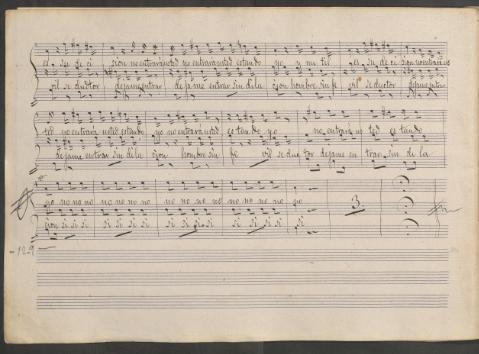 es su de ci sion no entrará usted no entrará usted estando yo y mi fu es su de ci sion no entrará us
vil se ductor dejame entrar dejame entrar sin dila cion hombre sin fe vil seductor dejame entrar
ted no entrará usted estando yo no entrará usted es tan do yo no entrará us ted es tando
dejame entrar sin dila cion hombre sin fe vil se duc tor dejame en trar sin di la
yo no no no no no no no no no no no no no
cion si si si si si si si si si si si si si
3
129